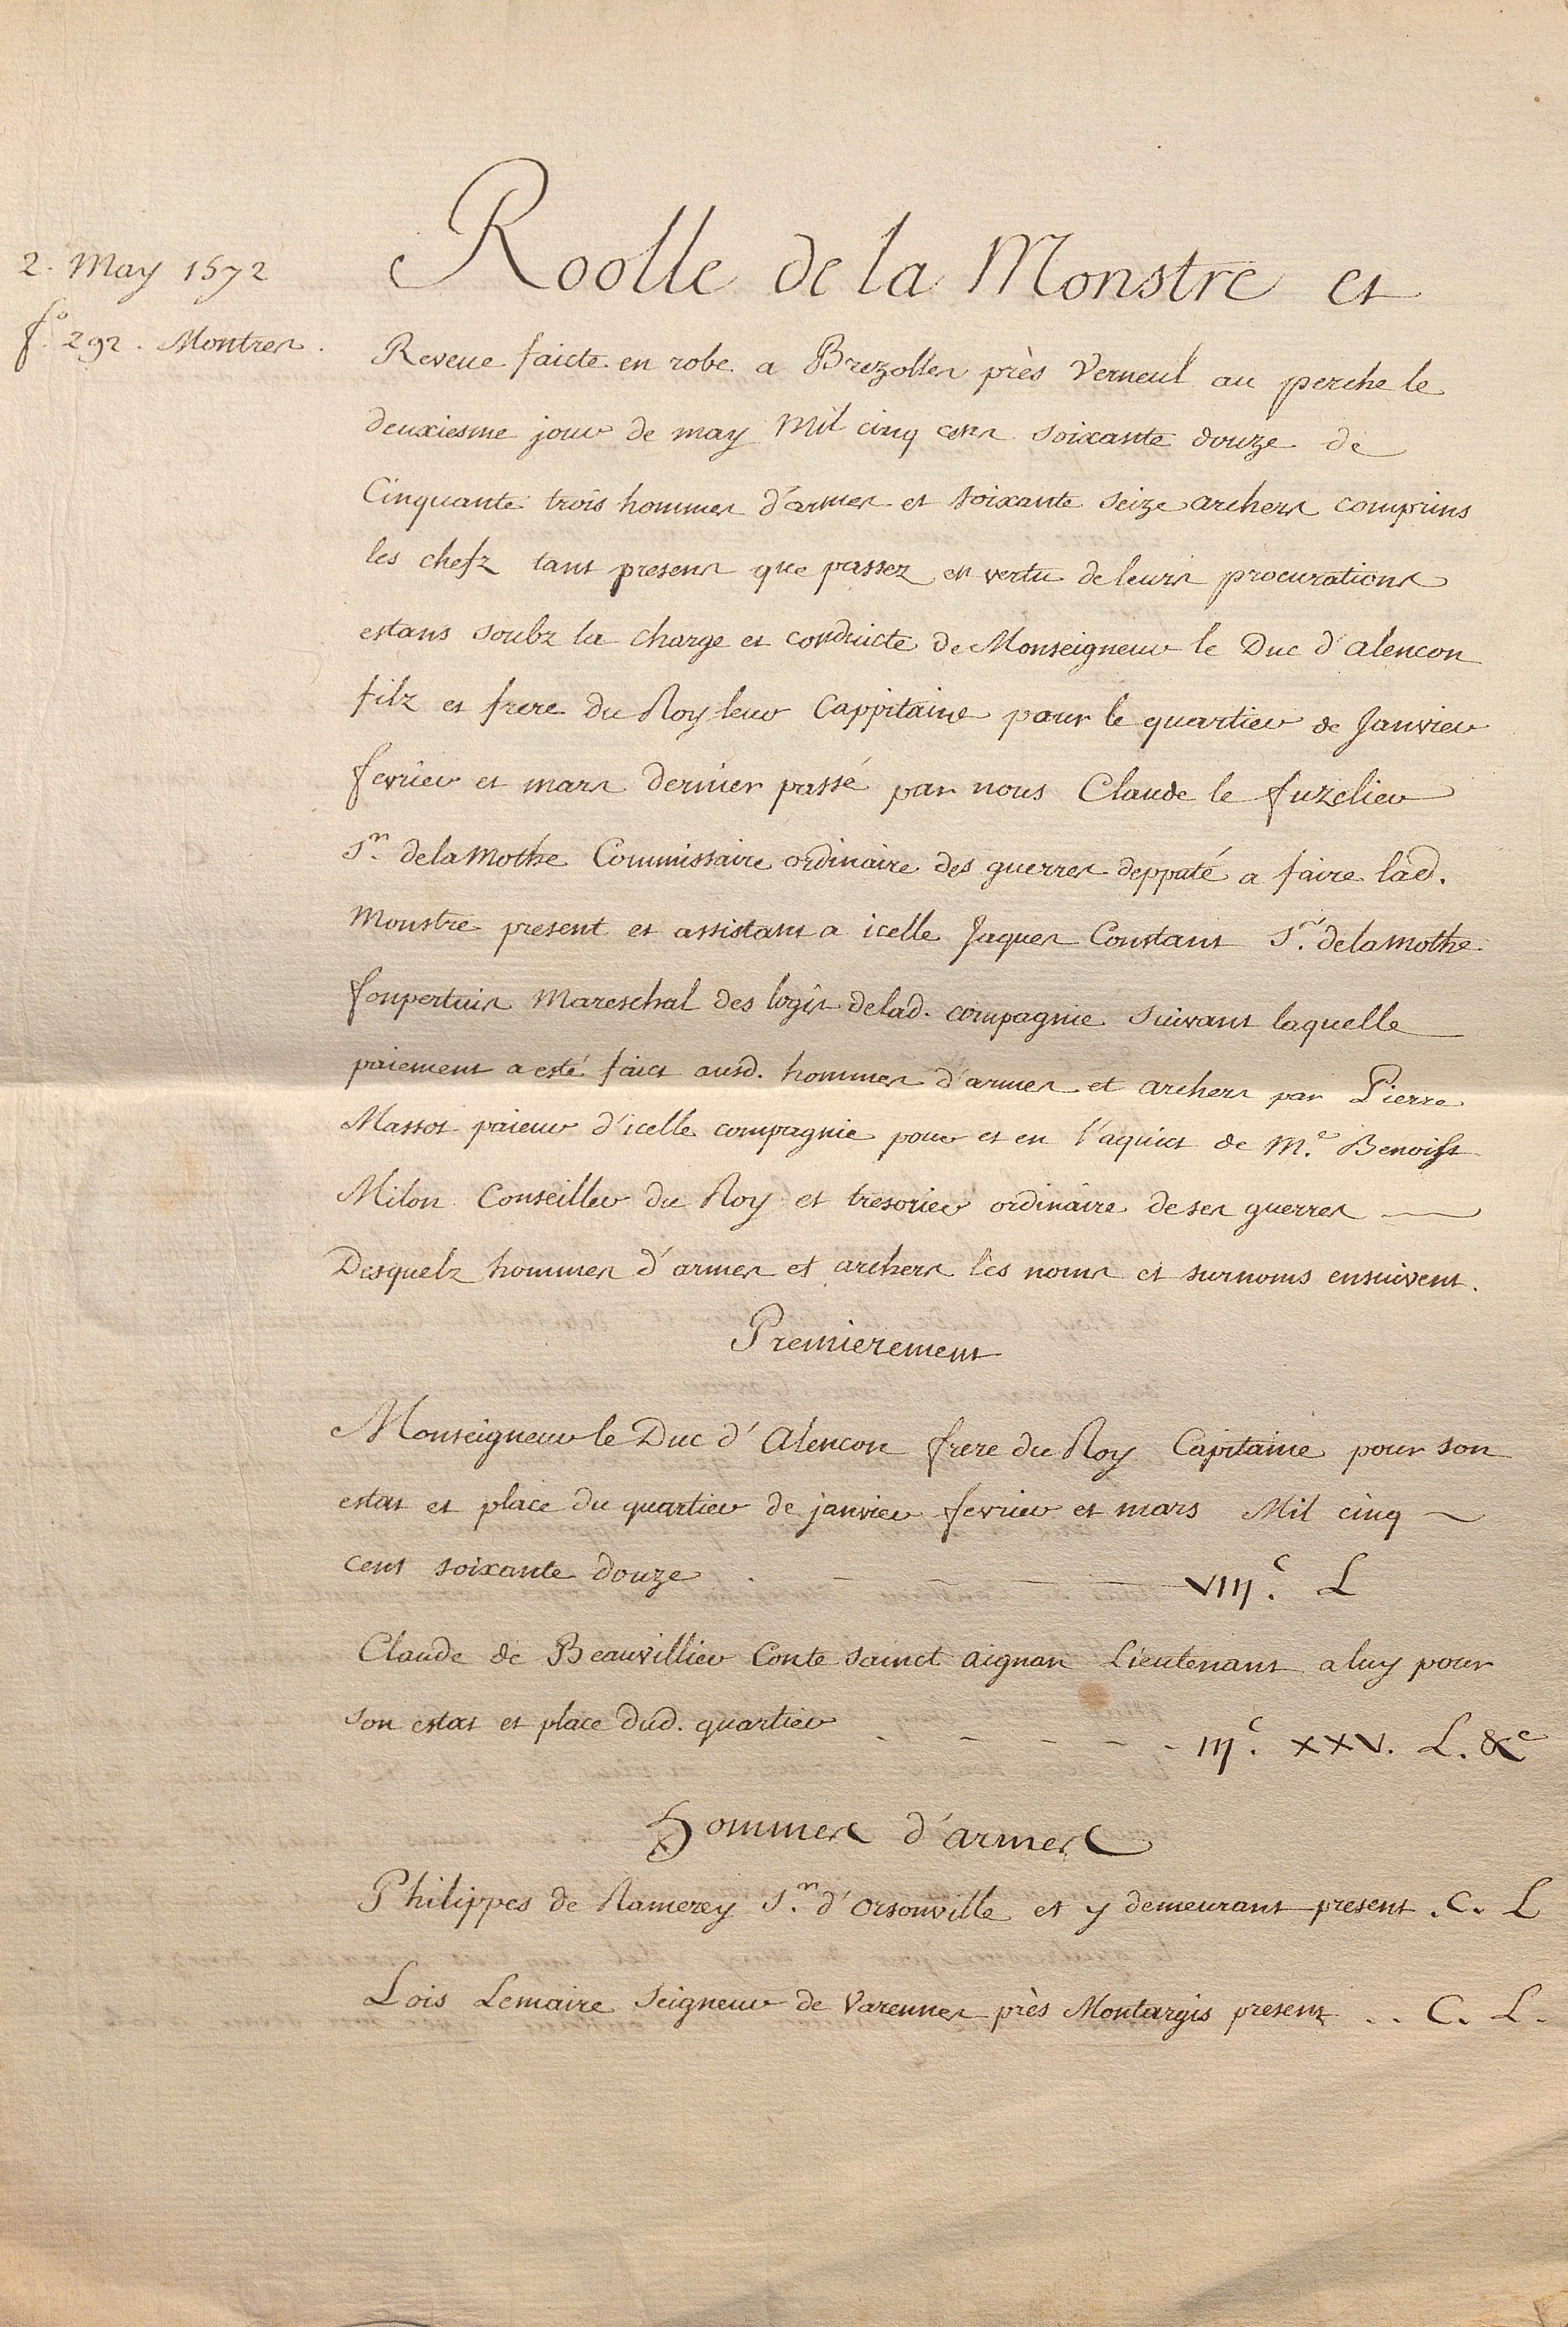 2. May 1572
f.º 292. Montres.
Roolle de la Monstre et
Reveue faicte en robe a Brezolles près Verneul au perche le
deuxiesme jour de may Mil cinq cens soixante douze de
Cinquante trois hommes d'armes et soixante seize archers comprins
les chefz tant presens que passez en vertu de leurs procurations
estans soubz la charge et conduicte de Monseigneur le Duc d'alencon
filz et frere du Roy leur Cappitaine pour le quartier de Janvier
fevrier et mars dernier passé par nous Claude le fuzelier
S.r delamothe Commissaire ordinaire des guerres depputé a faire lad.
Monstre present et assistant a icelle Jaques Constant S.r delamothe
fonpertuis Mareschal des logis delad. compagnie suivant laquelle
paiement a esté faict ausd. hommes d'armes et archers par Pierre
Massot paieur d'icelle compagnie pour et en l'aquict de M.e Benoist
Milon Conseiller du Roy et tresorier ordinaire de ses guerres
Desquelz hommes d'armes et archers les noms et surnoms ensuivent.
Premierement
Monseigneur le Duc d'Alencon frere du Roy Capitaine pour son
estat et place du quartier de janvier fevrier et mars Mil cinq
cent soixante douze . - - - - VIIJ.c L
Claude de Beauvillier Conte sainct aignan Lieutenant a luy pour
son estat et place dud. quartier - - - - - IIJ.c XXV. L. &c
Hommes d'armes
Philippes de Ramerey S.r d'orsonville et y demeurant present . C. L
Lois Lemaire seigneur de Varennes près Montargis present . . C. L.